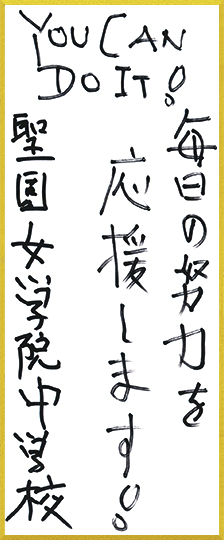 YOU CAN
DO IT!
毎日の努力を
応援します!
聖園女学院中学校